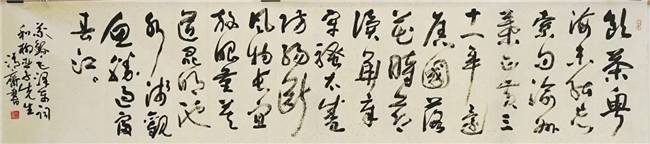 飲茶粤
海未能忘
索句渝州
葉正黄三
十一年還
舊國落
花時節
讀華章
牢騷太盛
防腸斷
風物長宜
放眼量莫
道昆明池
水淺觀
魚勝過富
春江。
毛澤東詞
和柳亞子先生
齋書